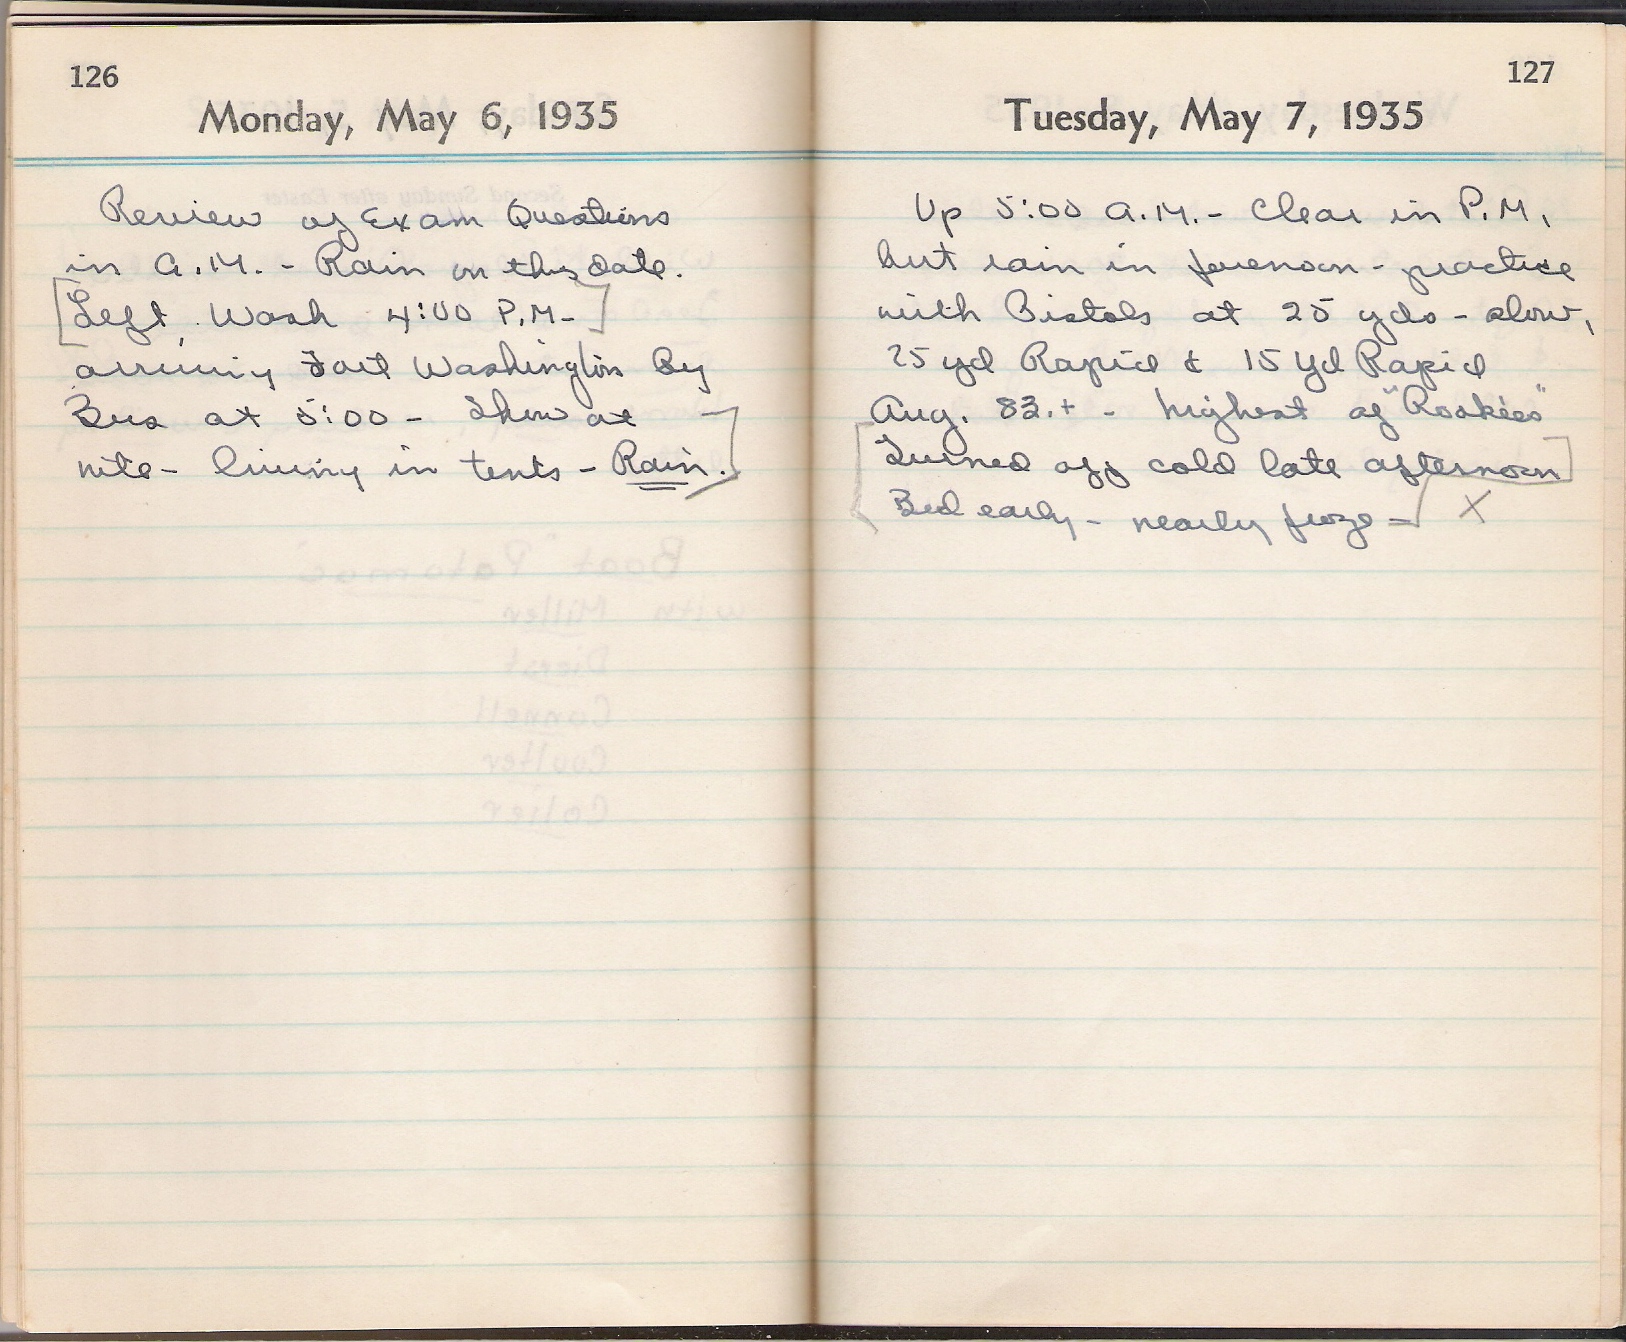 126
Monday, May 6, 1935
Review of Exam Questions
in A.M. - Rain on this date.
[Left Wash 4:00 P.M. - ]
arriving Fort Washington By
Bus at 5:00 - Show at
nite - living in tents - Rain.]
127
Tuesday, May 7, 1935
Up 5:00 A.M. - Clear in P.M,
but rain in forenoon - practice
with Pistols at 25 yds - slow,
25 yd Rapid & 15 Yd Rapid
Avg. 83.+ - highest of "Rookies"
[Turned off cold late afternoon]
Bed early - nearly froze - X
Boat "Potomac"
with Miller
Dierst
Connell
Coulter
Colier